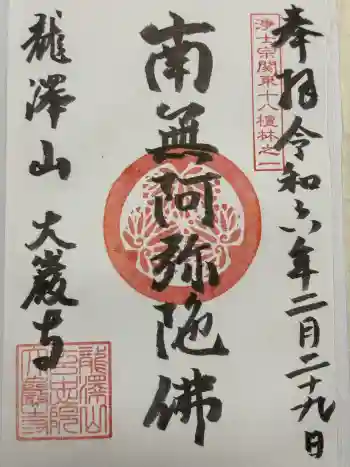 奉拝令和六年二月二十九日
浄土宗関東十八檀林之一
南無阿弥陀佛
龍澤山 大巖寺
龍澤山
玄忠院
大巖寺